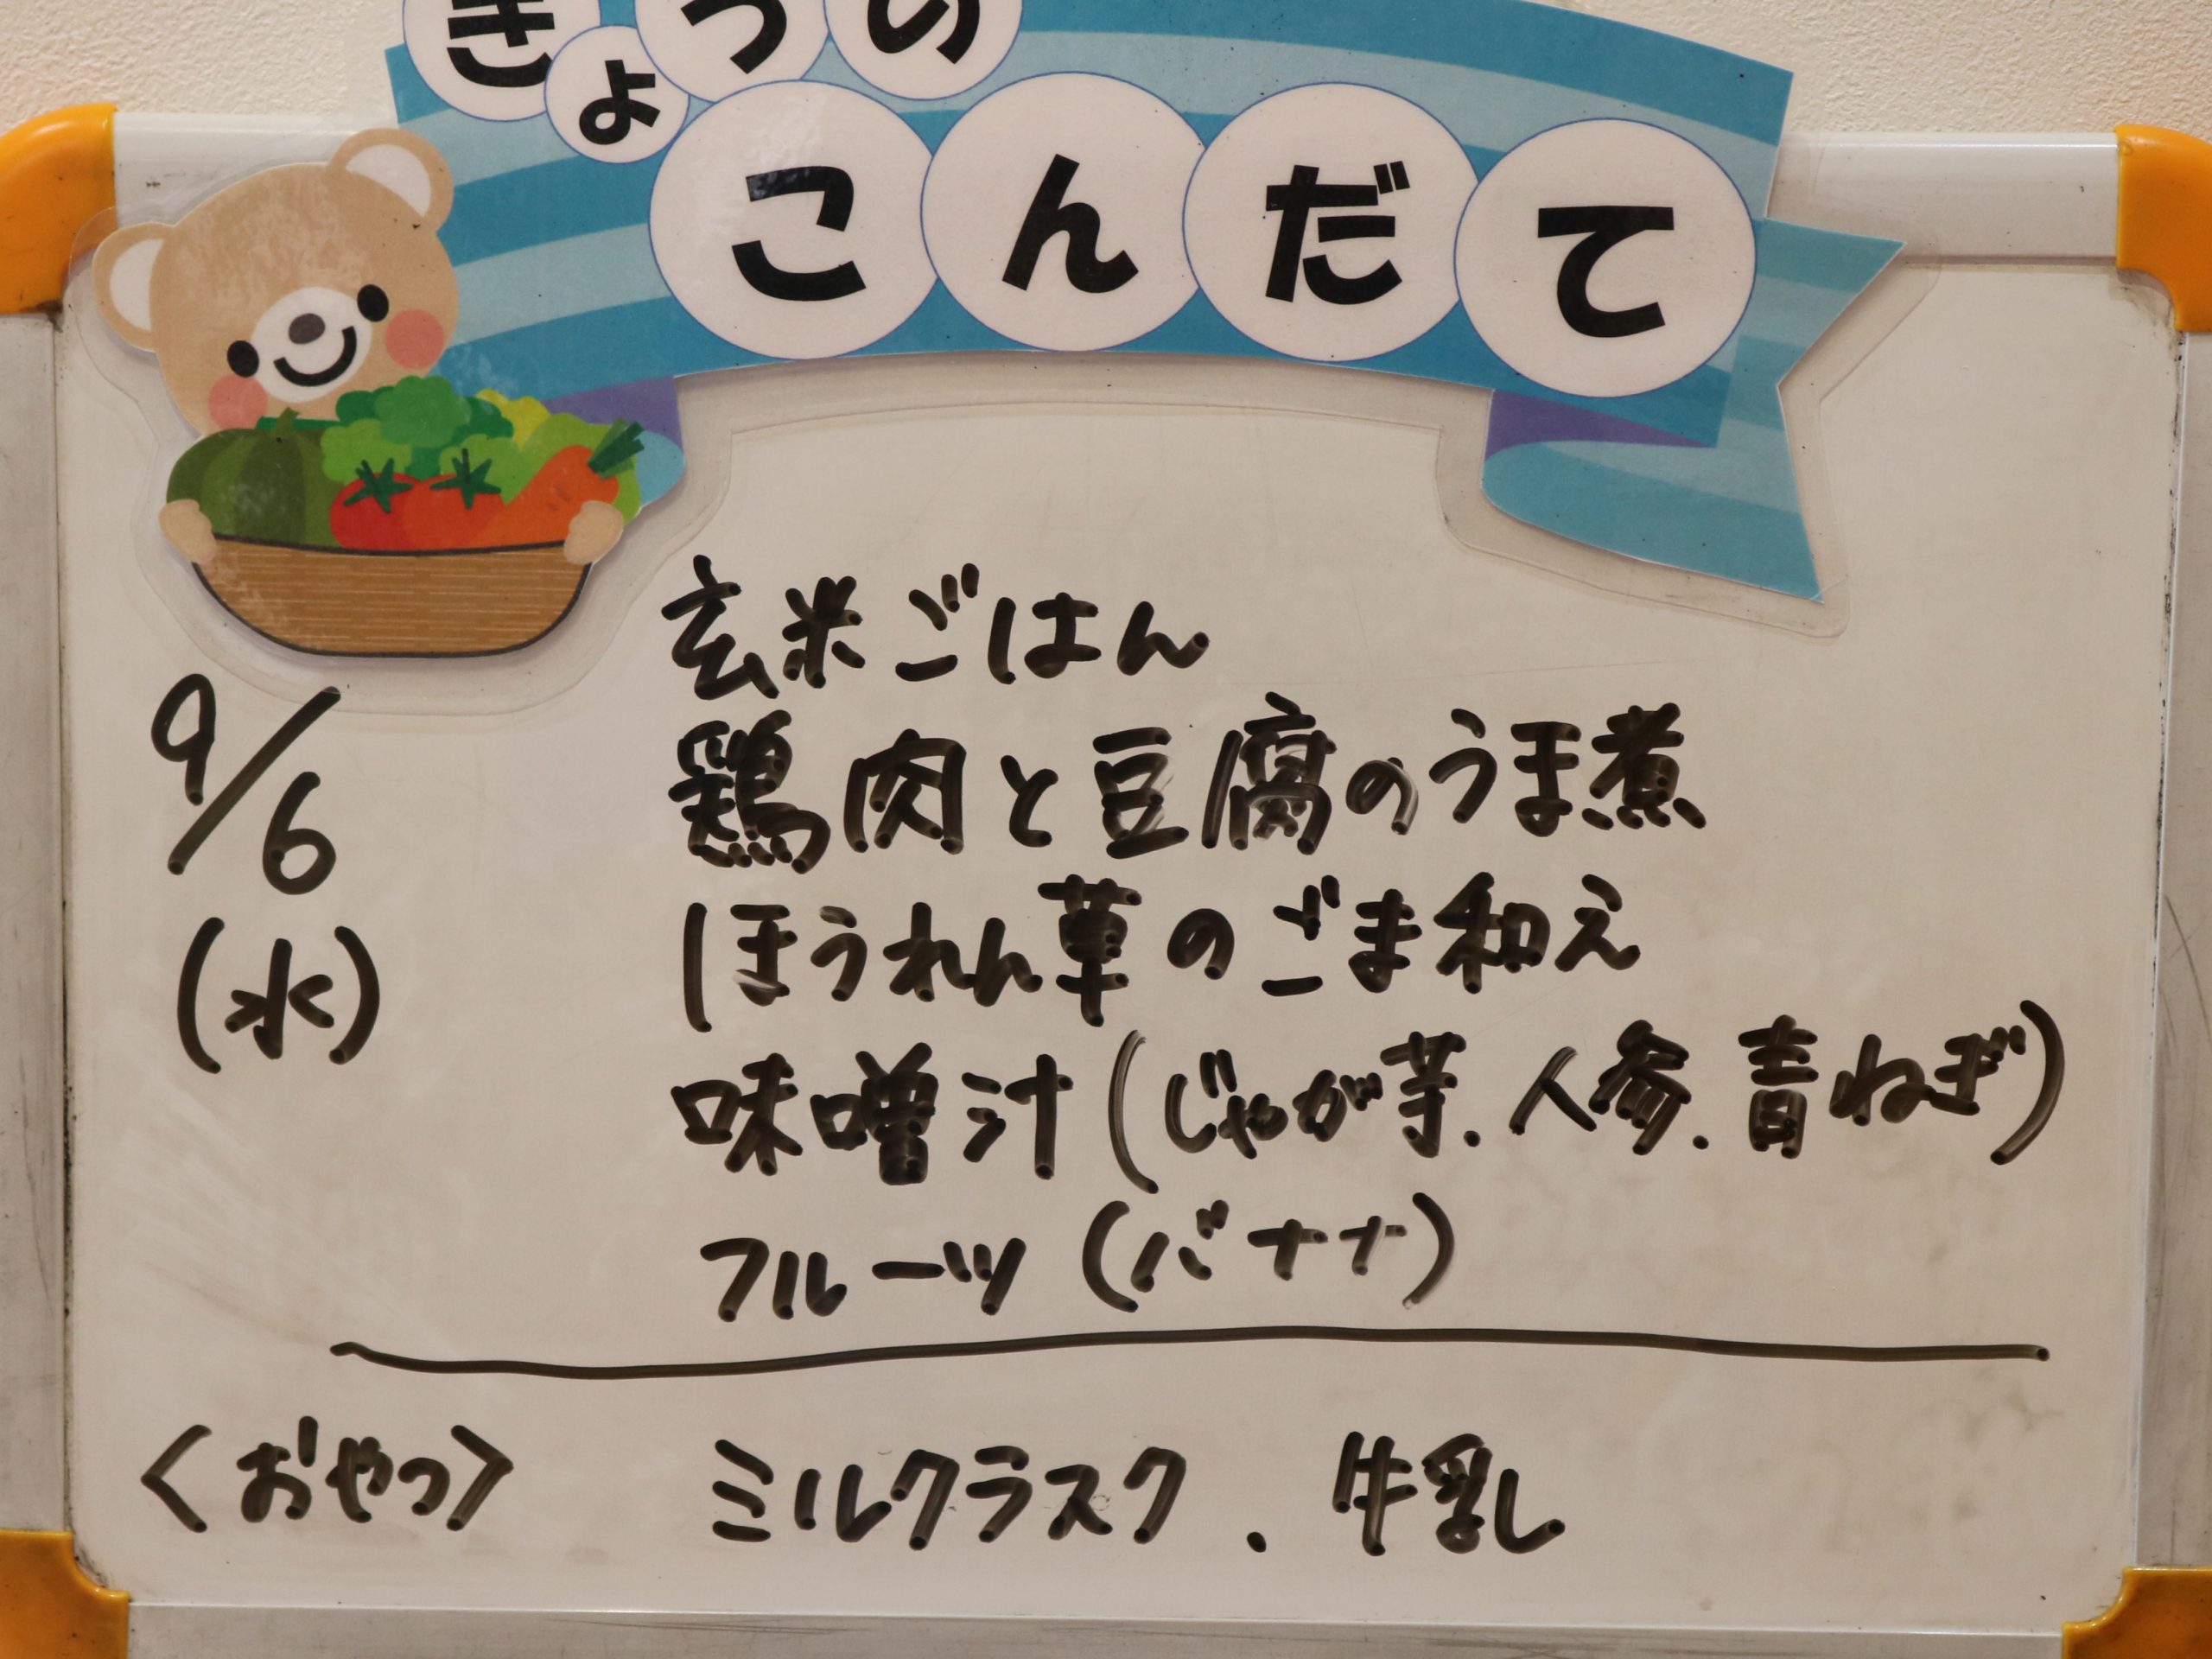 きょうの
こんだて
9/6
(水)
玄米ごはん
鶏肉と豆腐のうま煮
ほうれん草のごま和え
味噌汁(じゃが芋.人参.青ねぎ)
フルーツ(バナナ)
<おやつ> ミルクラスク . 牛乳